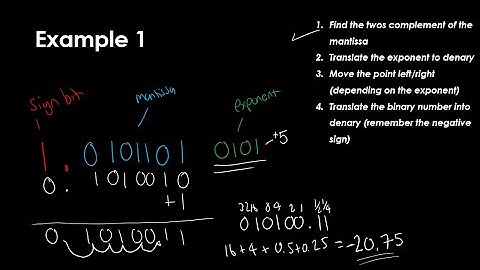 Example 1
1. Find the twos complement of the
mantissa
2. Translate the exponent to denary
3. Move the point left/right
(depending on the exponent)
4. Translate the binary number into
denary (remember the negative
sign)
sign bit
mantissa
exponent
1. 0101101 0101 +5
0. 1010010
+1
0 1010011
32 16 8 4 2 1 ½ ¼
010100.11
16+4+0.5+0.25 = -20.75